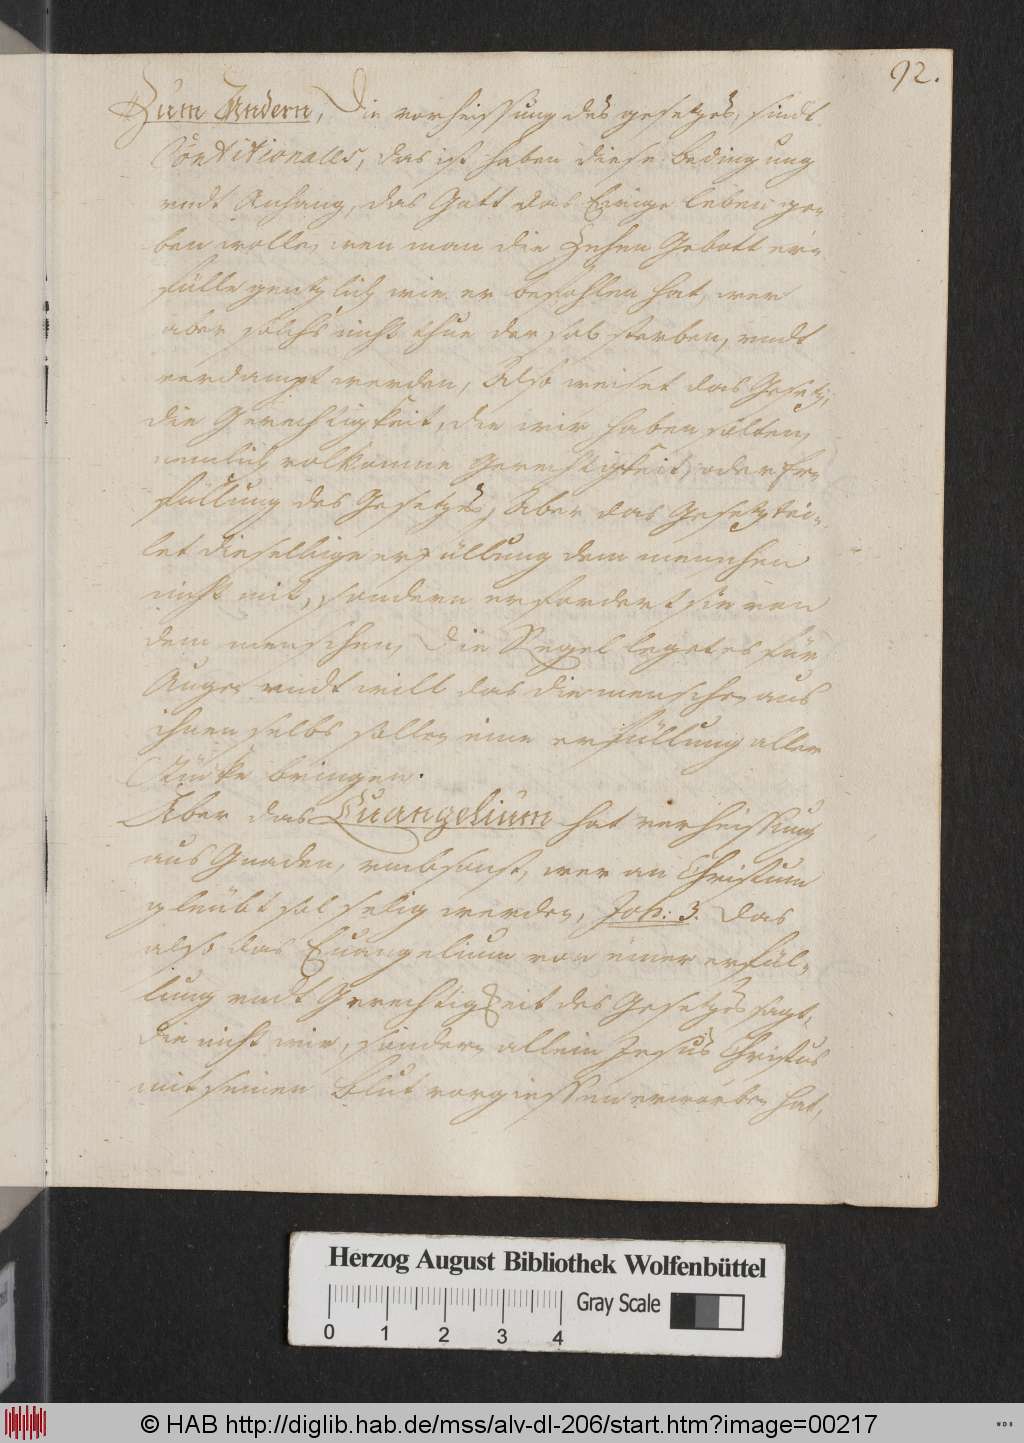 92.
Zum Andern, Die verheissung des gesetzes, sindt
Conditionales, das ist haben diese bedingung
undt Anhang, das Gott das Ewige leben ge-
ben wolle, wen man die Zehen Gebott er-
fülle gentzlich wie er befohlen hat, wer
aber solchs nicht thue der sol sterben, undt
verdampt werden, Also weiset das Gesetz,
die Gerechtigkeit, die wir haben solten,
nemlich volkomne Gerechtigkeit, oder Er-
füllung des Gesetzes, Aber das Gesetz tei-
let dieselbige erfüllung dem menschen
nicht mit, sondern erfordert sie von
dem menschen, Die Regel legetes für
Augen undt will das die menschen aus
ihnen selbs sollen eine erfüllung aller
Stücke bringen.
Aber das Euangelium hat verheissung
aus Gnaden, umbsonst, wer an Christum
gleubt sol selig werden, Joh: 3. Das
also das Euangelium von einer erfül-
lung undt Gerechtigkeit des Gesetzes sagt,
die nicht wir, sondern allein Jesus Christus
mit seinen Blut vorgiessen erworben hat,
Herzog August Bibliothek Wolfenbüttel
0 1 2 3 4
Gray Scale
© HAB http://diglib.hab.de/mss/alv-dl-206/start.htm?image=00217